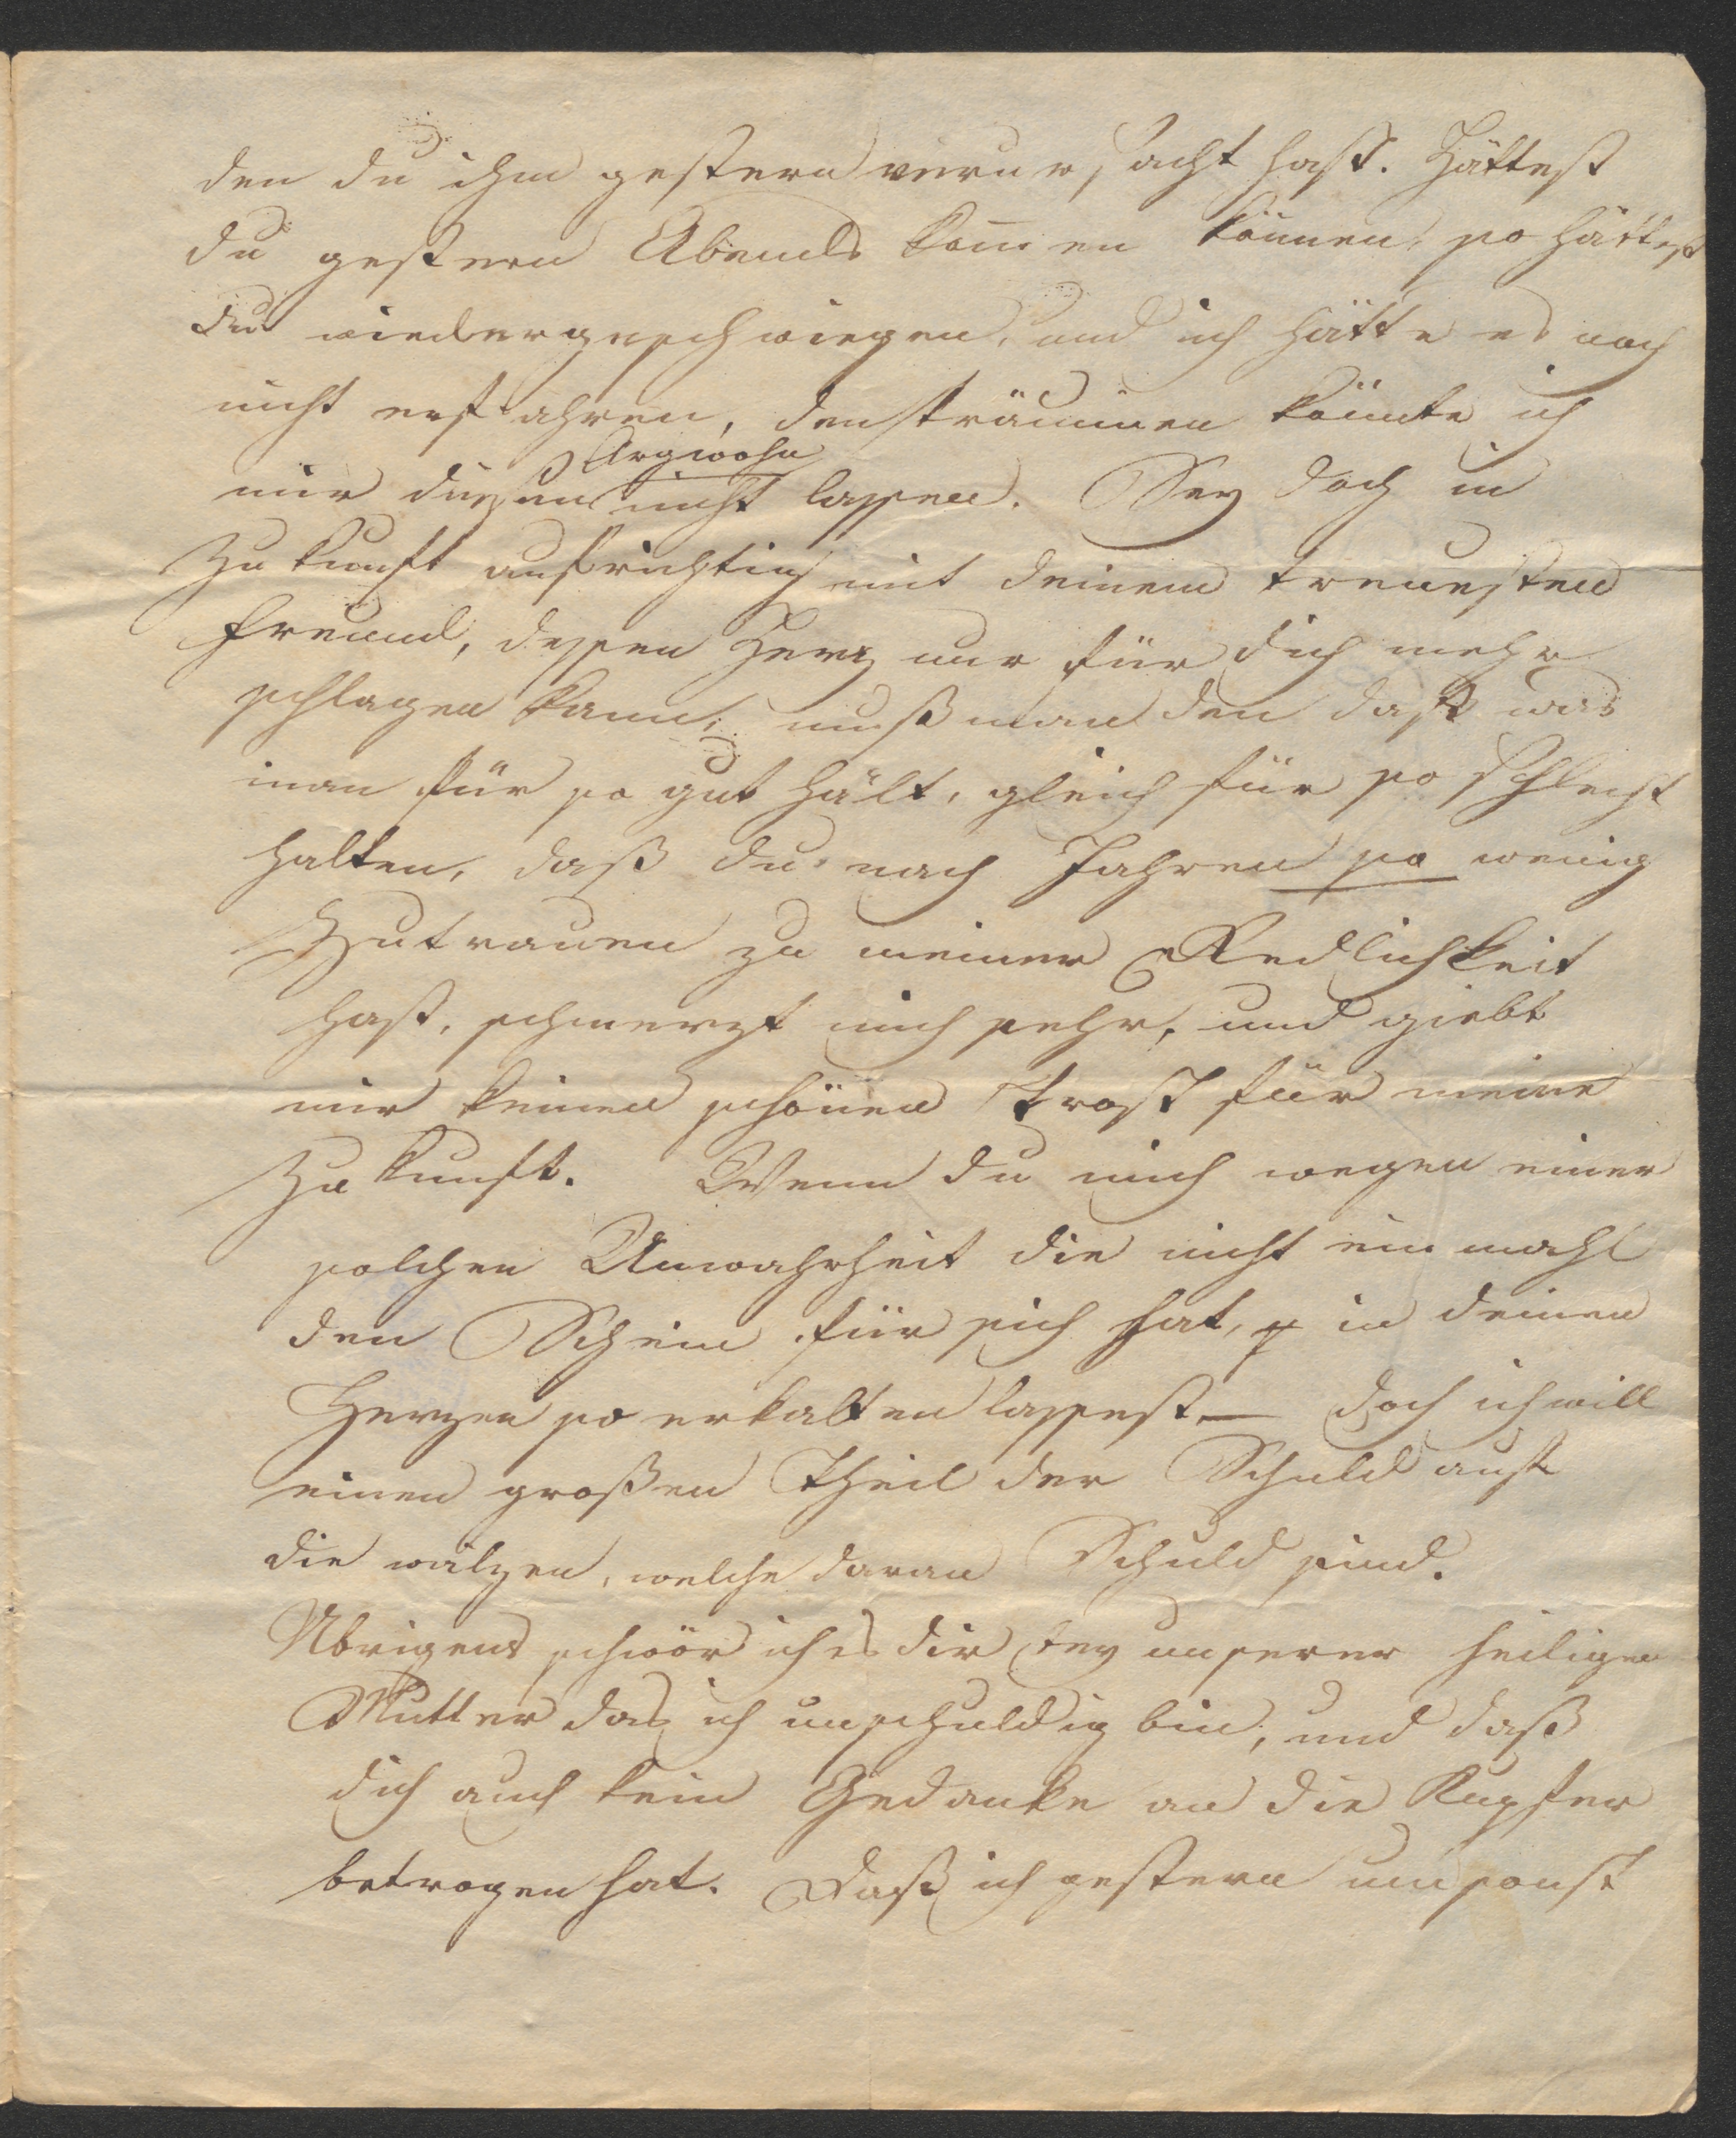 den du ihm gestern verursacht hast. Hättest
du gestern Abends kom̄en können, so hättest
du wiedergeschwiegen, und ich hätte es noch
nicht erfahren, den träumen könnte ich
Argwohn
mir diesen nicht lassen. Sey doch in
Zukunft aufrichtig mit deinem treuesten
Freund, dessen Herz nur für dich mehr
schlagen kann, muß man den daß was
man für so gut hält, gleich für so schlecht
halten, daß du nach Jahren so wenig
Zutrauen zu meiner Redlichkeit
hast, schmerzt mich sehr, und giebt
mir keinen schönen Trost für meine
Zukunft. Wenn du mich wegen einer
solchen Unwahrheit die nicht ein mahl
den Schein für sich hat, in deinen
Herzen so erkalten lassest, — doch ich will
einen großen Theil der Schuld auf
die wälzen, welche daran Schuld sind.
Übrigens schwör ich es dir bey unserer heiligen
Mutter das ich unschuldig bin, und daß
dich auch kein Gedanke an die Kupfer
betrogen hat. Daß ich gestern umsonst